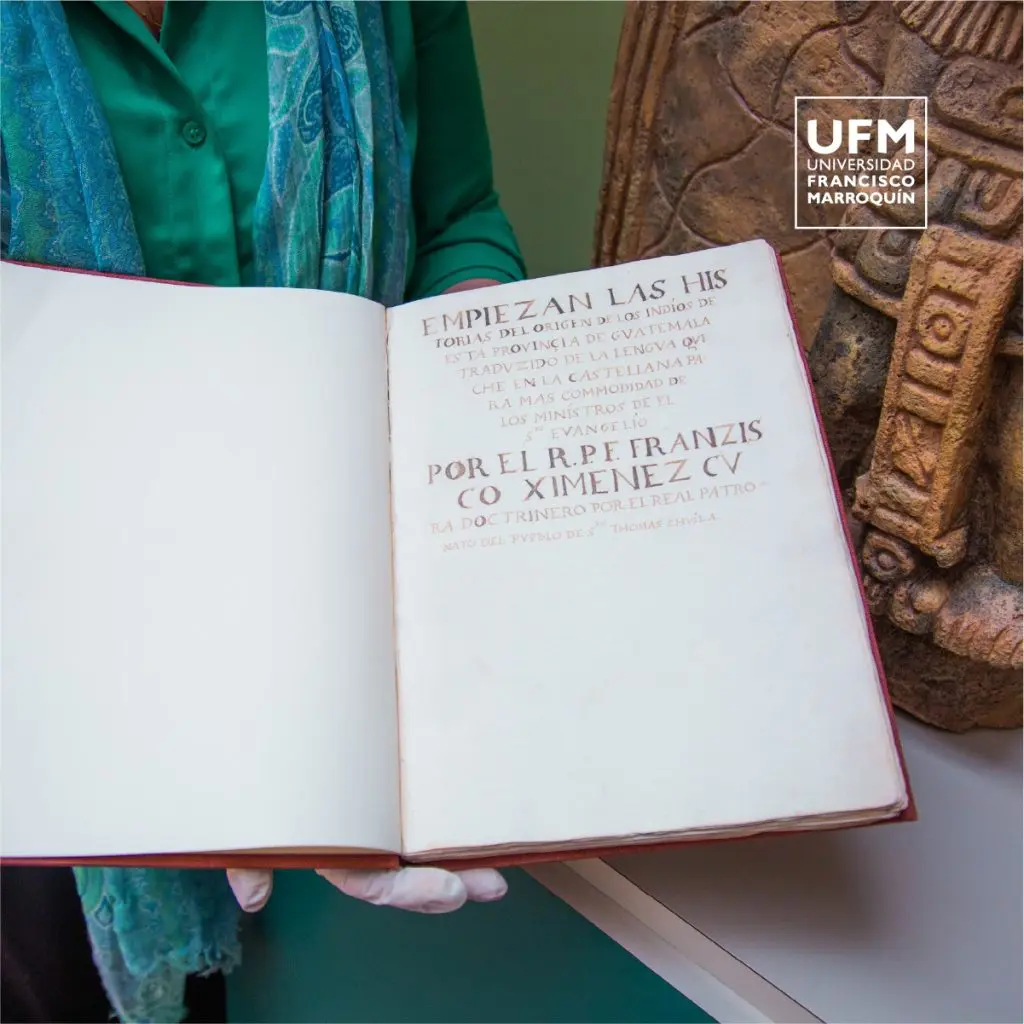 UFM
UNIVERSIDAD
FRANCISCO
MARROQUÍN
EMPIEZAN LAS HIS
TORIAS DEL ORIGEN DE LOS INDÍOS DE
ESTA PROVINÇIA DE GVATEMALA
TRADVZIDO DE LA LENGVA QVI
CHE EN LA CASTELLANA PA
RA MAS COMMODIDAD DE
LOS MINÍSTROS DE EL
S.TO EVANGELÍO
POR EL R.P.F. FRANZIS
CO XIMENEZ CV
RA DOCTRINERO POR EL REAL PATRO-
NATO DEL PVEBLO DE S.TO THOMAS CHVÍLA